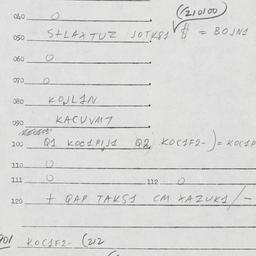 040 O (210100)
050 S+LAXTUZ JOTKS1 $ = BOJN1
060 O
070 O
080 KOJL1N
090 KACUVM7
100 Q1 KOC1PIJ1 Q2 KOC1F2-) = KOC1P
110 O
111 O 112 O
120 + QAP TAKS1 CM XAZUK1/-
901 KOC1F2- (212